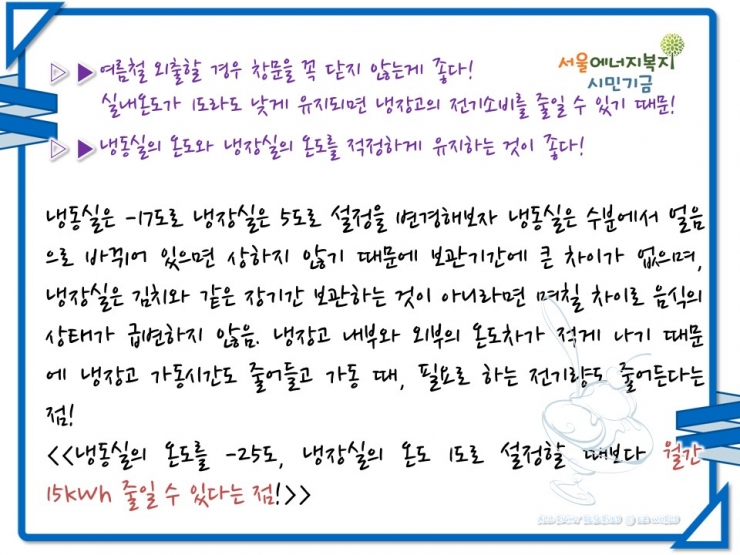 서울에너지복지
시민기금
▷ ▶ 여름철 외출할 경우 창문을 꼭 닫지 않는게 좋다!
실내온도가 1도라도 낮게 유지되면 냉장고의 전기소비를 줄일 수 있기 때문!
▷ ▶ 냉동실의 온도와 냉장실의 온도를 적정하게 유지하는 것이 좋다!
냉동실은 -17도로 냉장실은 5도로 설정을 변경해보자 냉동실은 수분에서 얼음
으로 바뀌어 있으면 상하지 않기 때문에 보관기간에 큰 차이가 없으며,
냉장실은 김치와 같은 장기간 보관하는 것이 아니라면 며칠 차이로 음식의
상태가 급변하지 않음. 냉장고 내부와 외부의 온도차가 적게 나기 때문
에 냉장고 가동시간도 줄어들고 가동 때, 필요로 하는 전기량도 줄어든다는
점!
<<냉동실의 온도를 -25도, 냉장실의 온도 1도로 설정할 때보다 월간
15kWh 줄일 수 있다는 점!>>